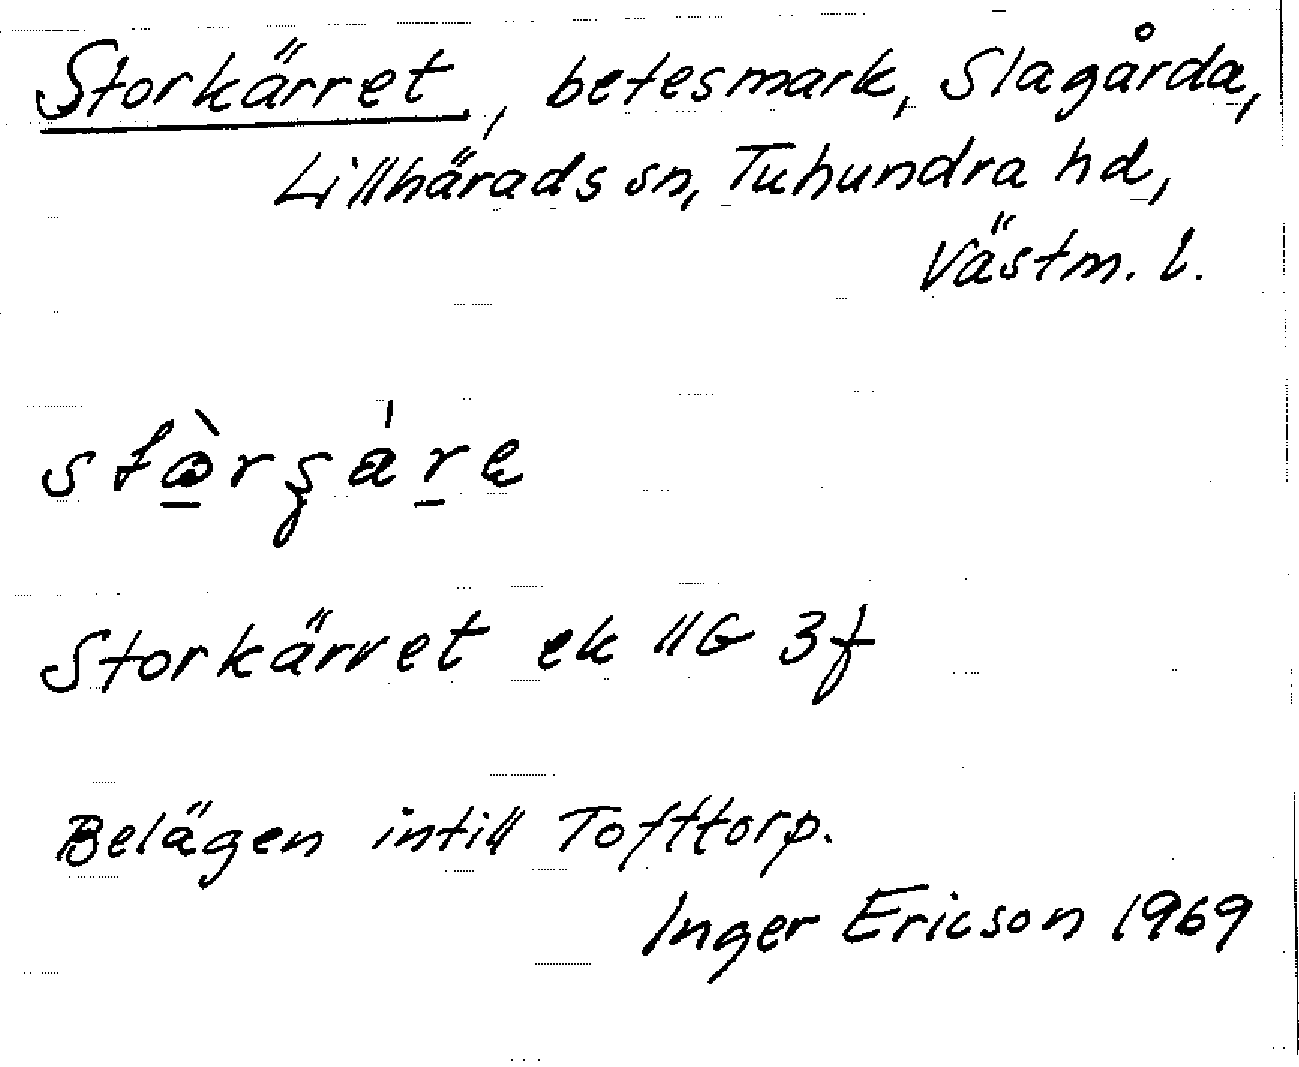 Storkärret, betesmark, Slagårda,
Lillhärads sn, Tuhundra hd,
Västm. l.
Storkärret ek 11G 3f
Belägen intill Tofttorp.
Inger Ericson 1969